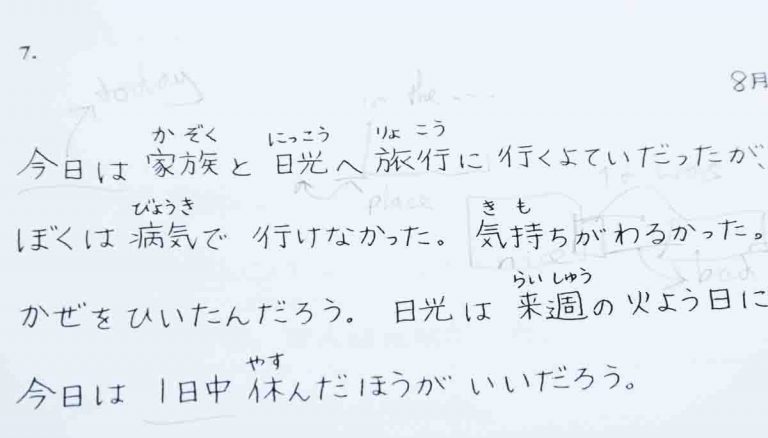 7.
today
in the ....
8月
かぞく にっこう りょこう
今日は家族と日光へ旅行に行くよていだったが、
place
びょうき きも
ぼくは病気で行けなかった。気持ちがわるかった。
nice bad
らいしゅう
かぜをひいたんだろう。日光は来週の火よう日に
やす
今日は1日中休んだほうがいいだろう。